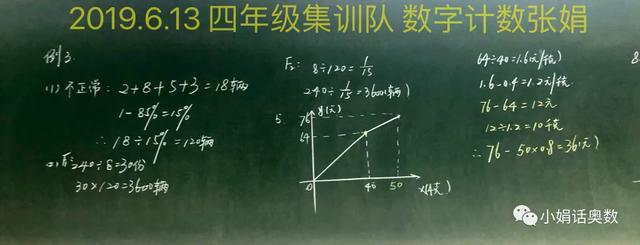 2019.6.13 四年级集训队 数字计数张娟
例3.
(1) 不正常: 2+8+5+3=18辆
1-85%=15%
∴ 18÷15%=120辆
240÷8=30份
30×120=3600辆
8÷120=1/15
240÷1/15=3600(辆)
5.
y(元)
76
64
0
40
50
x(千克)
64÷40=1.6(元/千克)
1.6-0.4=1.2元/千克
76-64=12元
12÷1.2=10千克
∴ 76-50×0.8=36(元)
小娟话奥数